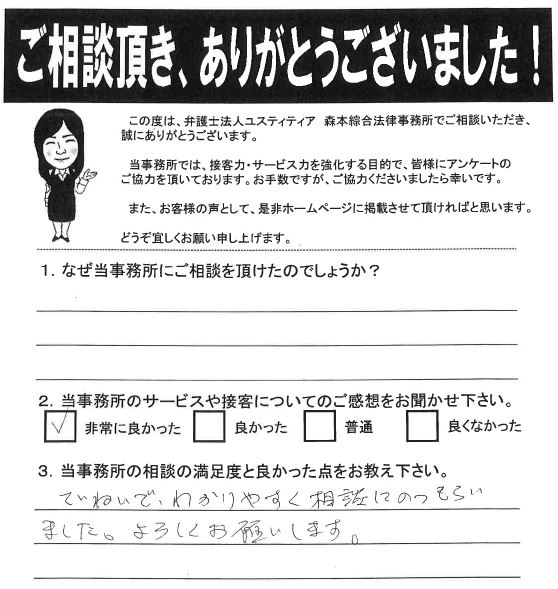 ご相談頂き、ありがとうございました！
この度は、弁護士法人ユスティティア 森本綜合法律事務所でご相談いただき、
誠にありがとうございます。
当事務所では、接客力・サービス力を強化する目的で、皆様にアンケートの
ご協力を頂いております。お手数ですが、ご協力くださいましたら幸いです。
また、お客様の声として、是非ホームページに掲載させて頂ければと思います。
どうぞ宜しくお願い申し上げます。
1．なぜ当事務所にご相談を頂けたのでしょうか？
2．当事務所のサービスや接客についてのご感想をお聞かせ下さい。
✓ 非常に良かった 良かった 普通 良くなかった
3．当事務所の相談の満足度と良かった点をお教え下さい。
ていねいで、わかりやすく相談にのってもらい
ました。よろしくお願いします。